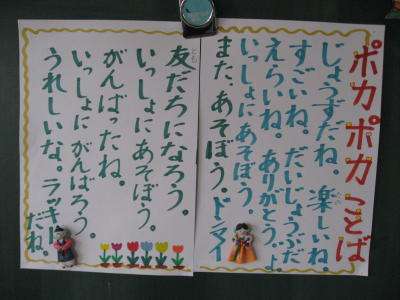 ポカポカことば
じょうずだね。楽しいね。
すごいね。だいじょうぶだよ。
えらいね。ありがとう。
いっしょにあそぼう。
また、あそぼう。ドンマイ
友だちになろう。
いっしょにあそぼう。
がんばったね。
いっしょにがんばろう。
うれしいな。ラッキーだね。